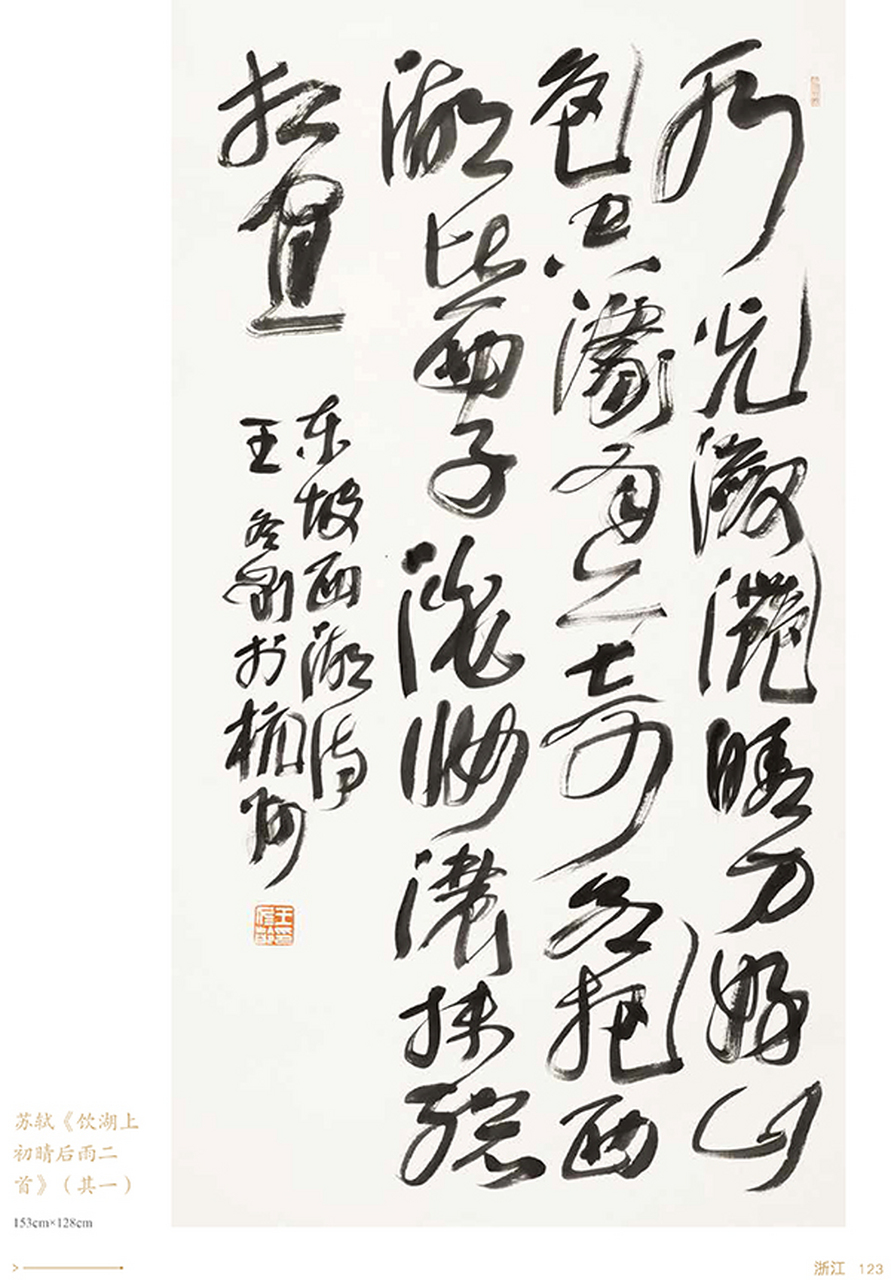 水光瀲灩晴方好山
色空濛雨亦奇欲把西
湖比西子淡妝濃抹總
相宜
东坡西湖诗
王冬龄於杭州
苏轼《饮湖上
初晴后雨二
首》（其一）
153cm×128cm
浙江 123